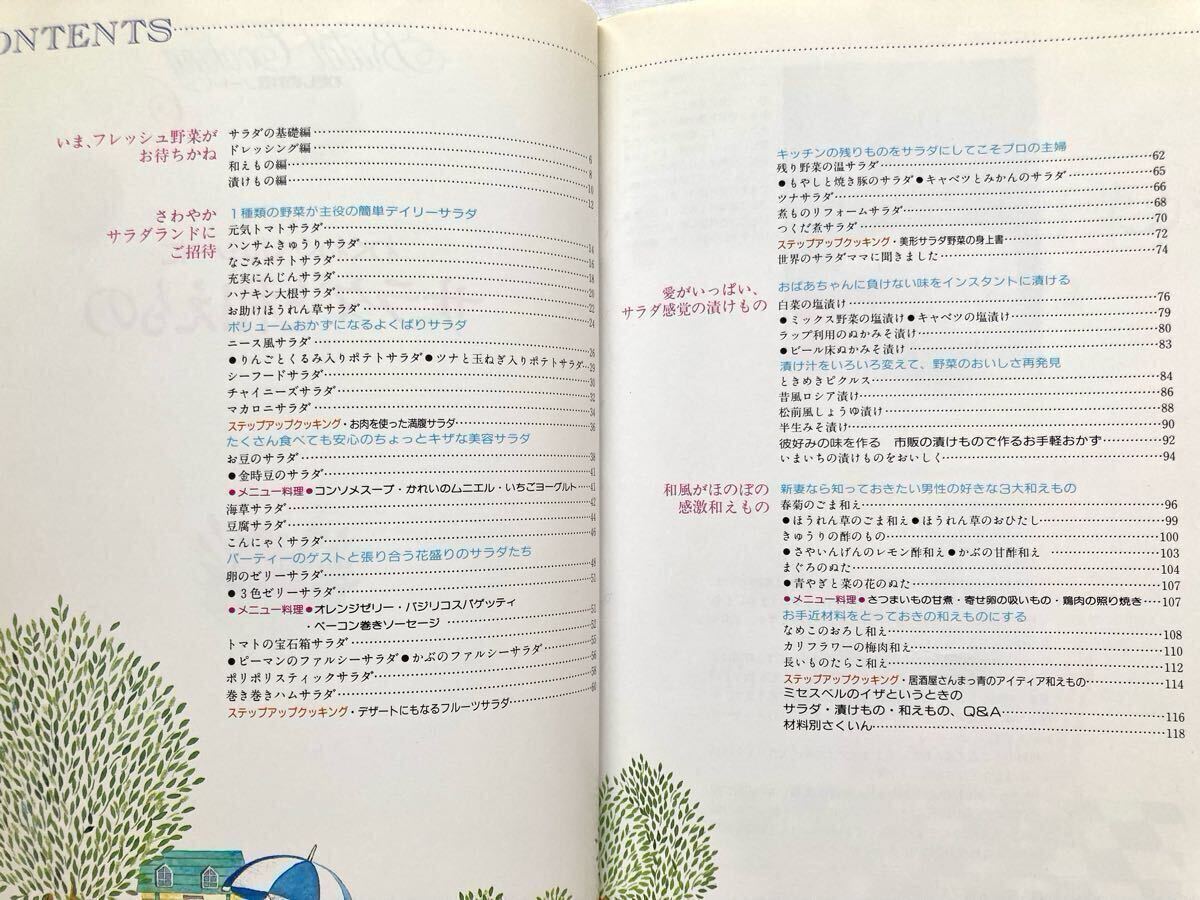 CONTENTS
いま、フレッシュ野菜が
お待ちかね
サラダの基礎編 6
ドレッシング編 8
和えもの編 10
漬けもの編 12
さわやか
サラダランドに
ご招待
1種類の野菜が主役の簡単デイリーサラダ
元気トマトサラダ 14
ハンサムきゅうりサラダ 16
なごみポテトサラダ 18
充実にんじんサラダ 20
ハナキン大根サラダ 22
お助けほうれん草サラダ 24
ボリュームおかずになるよくばりサラダ
ニース風サラダ 26
●りんごとくるみ入りポテトサラダ●ツナと玉ねぎ入りポテトサラダ 29
シーフードサラダ 30
チャイニーズサラダ 32
マカロニサラダ 34
ステップアップクッキング・お肉を使った満腹サラダ 36
たくさん食べても安心のちょっとキザな美容サラダ
お豆のサラダ 38
●金時豆のサラダ 41
●メニュー料理●コンソメスープ・かれいのムニエル・いちごヨーグルト 41
海草サラダ 42
豆腐サラダ 44
こんにゃくサラダ 46
パーティーのゲストと張り合う花盛りのサラダたち
卵のゼリーサラダ 48
●3色ゼリーサラダ 51
●メニュー料理●オレンジゼリー・バジリコスパゲッティ 51
・ベーコン巻きソーセージ 52
トマトの宝石箱サラダ 55
●ピーマンのファルシーサラダ●かぶのファルシーサラダ 56
ポリポリスティックサラダ 58
巻き巻きハムサラダ 60
ステップアップクッキング・デザートにもなるフルーツサラダ
キッチンの残りものをサラダにしてこそプロの主婦
残り野菜の温サラダ 62
●もやしと焼き豚のサラダ●キャベツとみかんのサラダ 65
ツナサラダ 66
煮ものリフォームサラダ 68
つくだ煮サラダ 70
ステップアップクッキング・美形サラダ野菜の身上書 72
世界のサラダママに聞きました 74
愛がいっぱい、
サラダ感覚の漬けもの
おばあちゃんに負けない味をインスタントに漬ける
白菜の塩漬け 76
●ミックス野菜の塩漬け●キャベツの塩漬け 79
ラップ利用のぬかみそ漬け 80
●ビール床ぬかみそ漬け 83
漬け汁をいろいろ変えて、野菜のおいしさ再発見
ときめきピクルス 84
昔風ロシア漬け 86
松前風しょうゆ漬け 88
半生みそ漬け 90
彼好みの味を作る 市販の漬けもので作るお手軽おかず 92
いまいちの漬けものをおいしく 94
和風がほのぼの
感激和えもの
新妻なら知っておきたい男性の好きな3大和えもの
春菊のごま和え 96
●ほうれん草のごま和え●ほうれん草のおひたし 99
きゅうりの酢のもの 100
●さやいんげんのレモン酢和え●かぶの甘酢和え 103
まぐろのぬた 104
●青やぎと菜の花のぬた 107
●メニュー料理●さつまいもの甘煮・寄せ卵の吸いもの・鶏肉の照り焼き 107
お手近材料をとっておきの和えものにする
なめこのおろし和え 108
カリフラワーの梅肉和え 110
長いものたらこ和え 112
ステップアップクッキング・居酒屋さんまっ青のアイディア和えもの 114
ミセスベルのイザというときの
サラダ・漬けもの・和えもの、Q&A 116
材料別さくいん 118